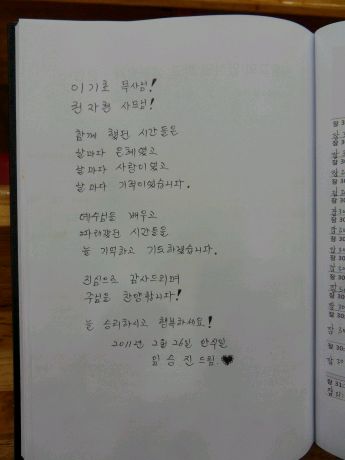 이기호 목사님!
권자현 사모님!
함께 했던 시간들은
날마다 은혜였고
날마다 사랑이었고
날마다 기적이었습니다.
예수님을 배우고
따라갔던 시간들을
늘 기억하고 기도하겠습니다.
진심으로 감사드리며
주님을 찬양합니다!
늘 승리하시고 행복하세요!
2011년 2월 26일 안수일
임승진 드림.♥